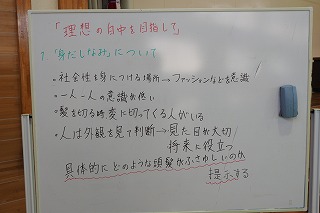 「理想の自中を目指して」
1 「身だしなみ」について
・社会性を身につける場所→ファッションなどを意識
・一人一人の意識が低い
・髪を切る時変に切ってくる人がいる
・人は外観を見て判断→見た目が大切
将来に役立つ
具体的にどのような頭髪がふさわしいのか
提示する